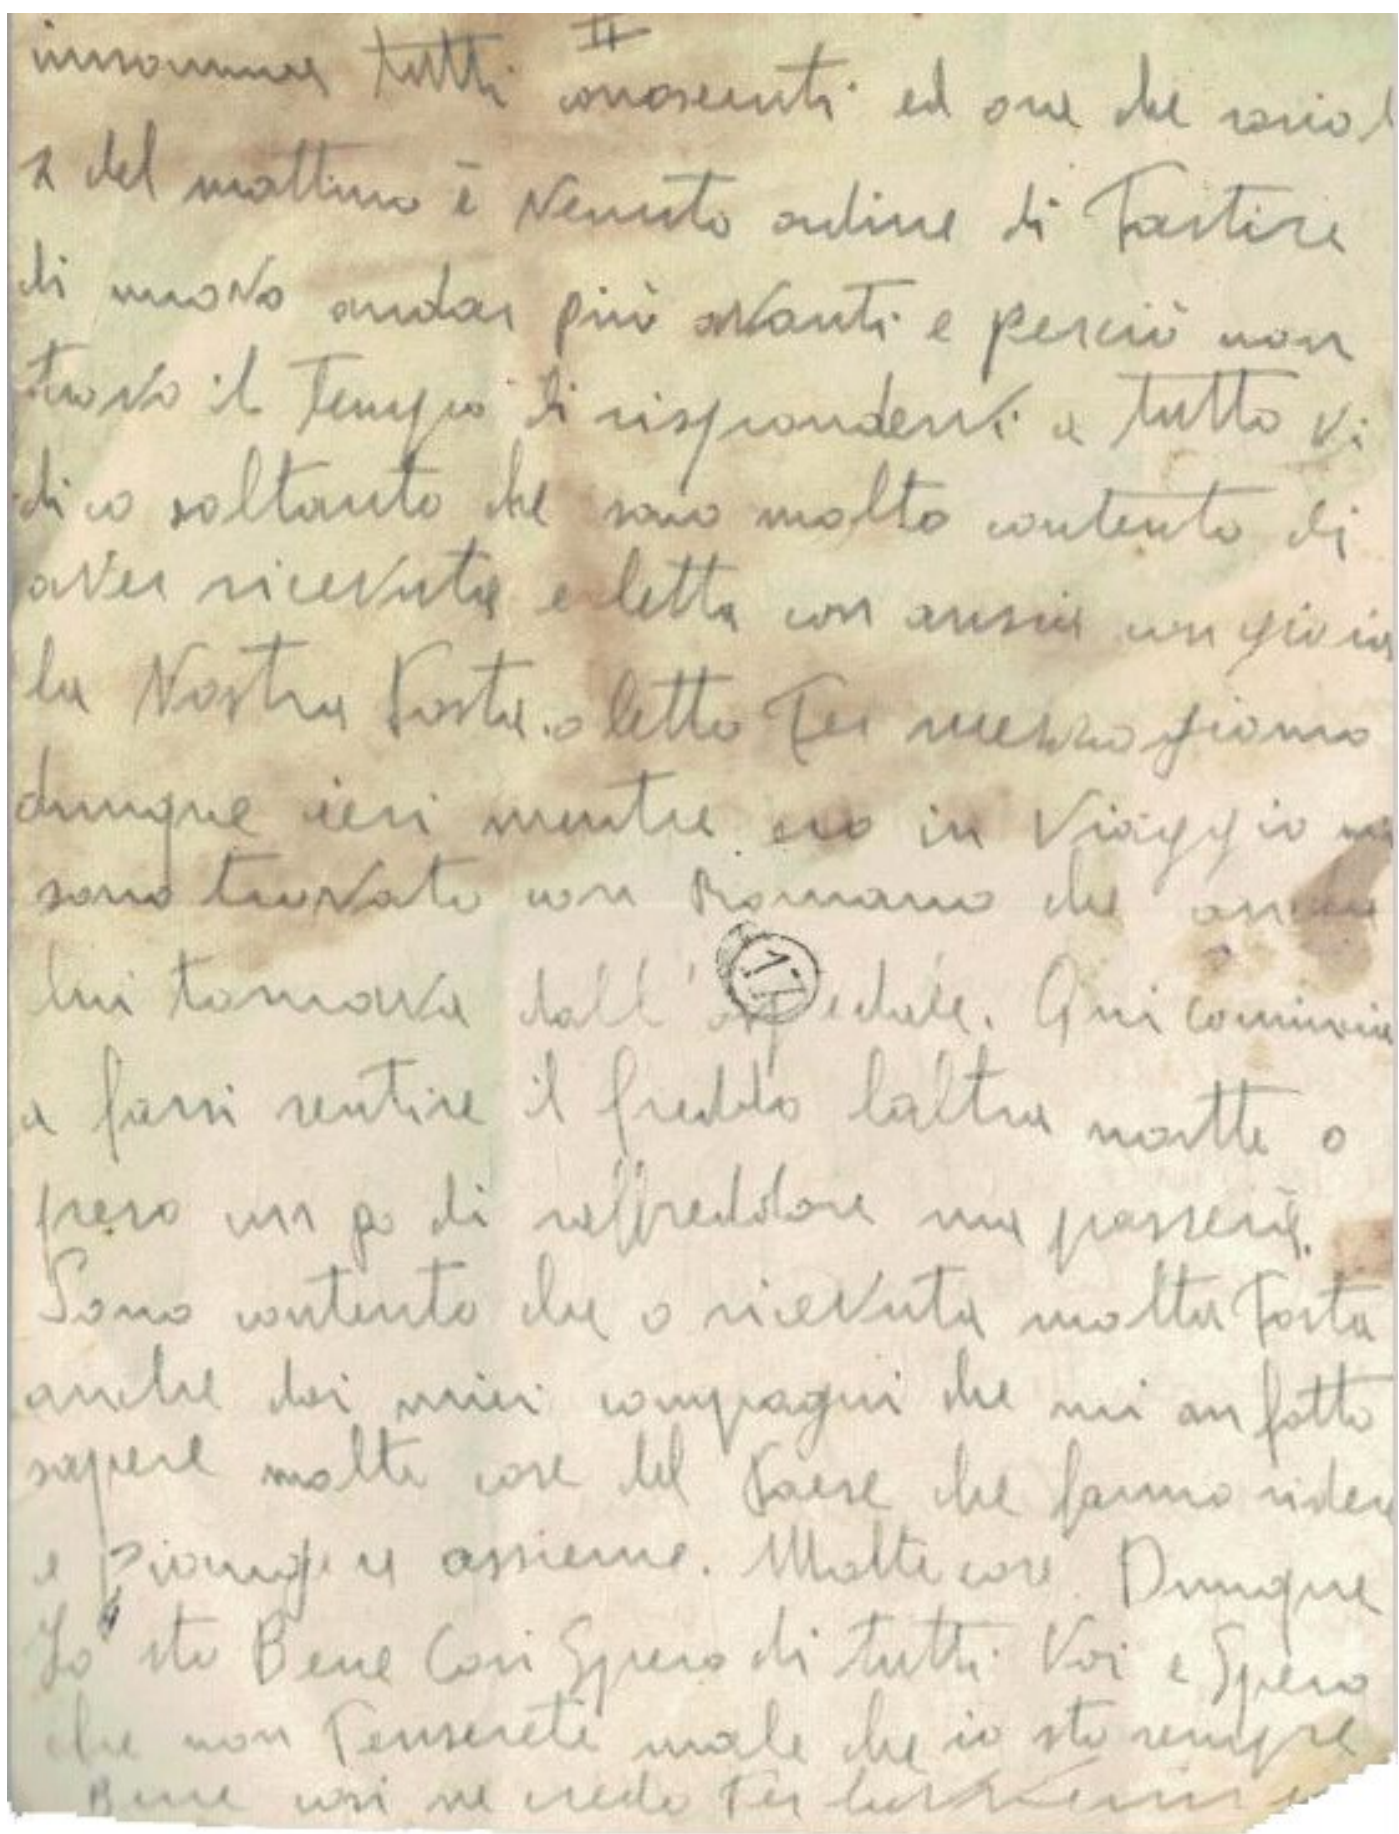 II
insomma tutti conoscenti ed ora che sono l
2 del mattino è Venuto ordine di Partire
di nuovo andar più avanti e perciò non
trovo il Tempo di rispondervi a tutto Vi
dico soltanto che sono molto contento di
aver ricevuta e letta con ansia con gioia
la Vostra Posta. o letto Per mezzo giorno
dunque ieri mentre ero in Viaggio mi
sono trovato con Romano che anche
lui tornava dall'ospedale. Qui comincia
a farsi sentire il freddo laltra notte o
preso un po di raffreddore ma passerà.
Sono contento che o ricevuta molta Posta
anche dai miei compagni che mi an fatto
sapere molte cose del Paese che fanno rider
e Piangere assieme. Molte cose. Dunque
Io sto Bene Cosi Spero di tutti Voi e Spero
che non Penserete male che io sto sempre
Bene cosi ne credo Per
17